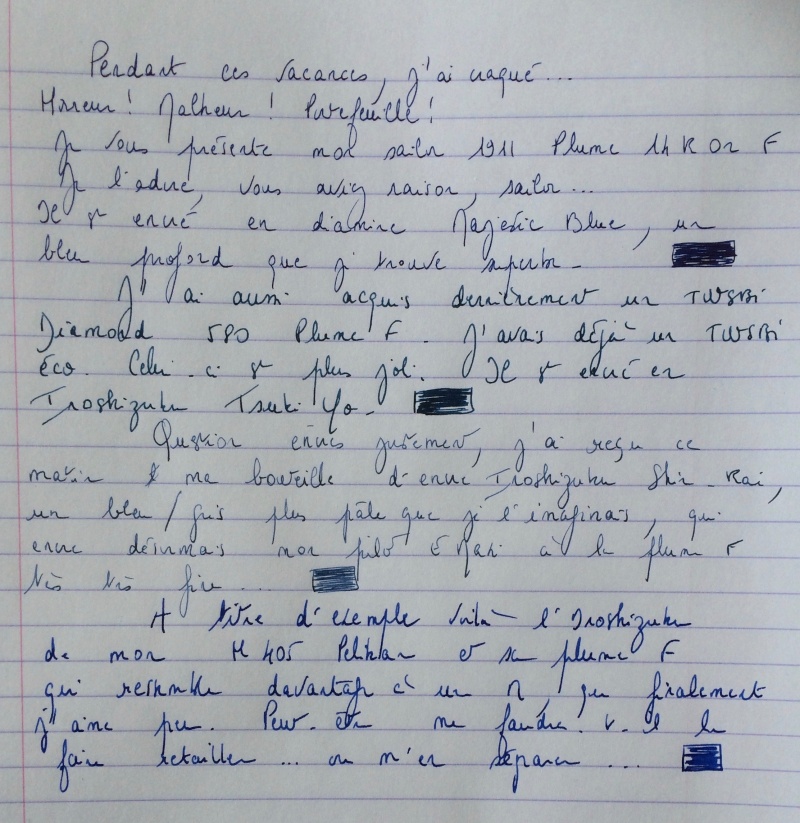 Pendant ces vacances, j'ai craqué...
Horreur ! Malheur ! Portefeuille !
Je vous présente mon sailor 1911 Plume 14 K Or F
Je l'adore, vous aviez raison, sailor...
Il est encré en diamine Majestic Blue, un
bleu profond que je trouve superbe.
J'ai aussi acquis dernièrement un TWSBI
Diamond 580 Plume F. J'avais déjà un TWSBI
éco. Celui-ci est plus joli. Il est encré en
Iroshizuku Tsuki Yo.
Question encres justement, j'ai reçu ce
matin ma bouteille d'encre Iroshizuku Shin-Kai,
un bleu/gris plus pâle que je l'imaginais, qui
encre désormais mon à la plume F
très très fine...
A titre d'exemple voilà l'Iroshizuku
de mon M 405 Pelikan et sa plume F
qui ressemble davantage à un M, que finalement
j'aime peu. Peut-être me faudra-t-il la
faire retailler... ou m'en séparer...